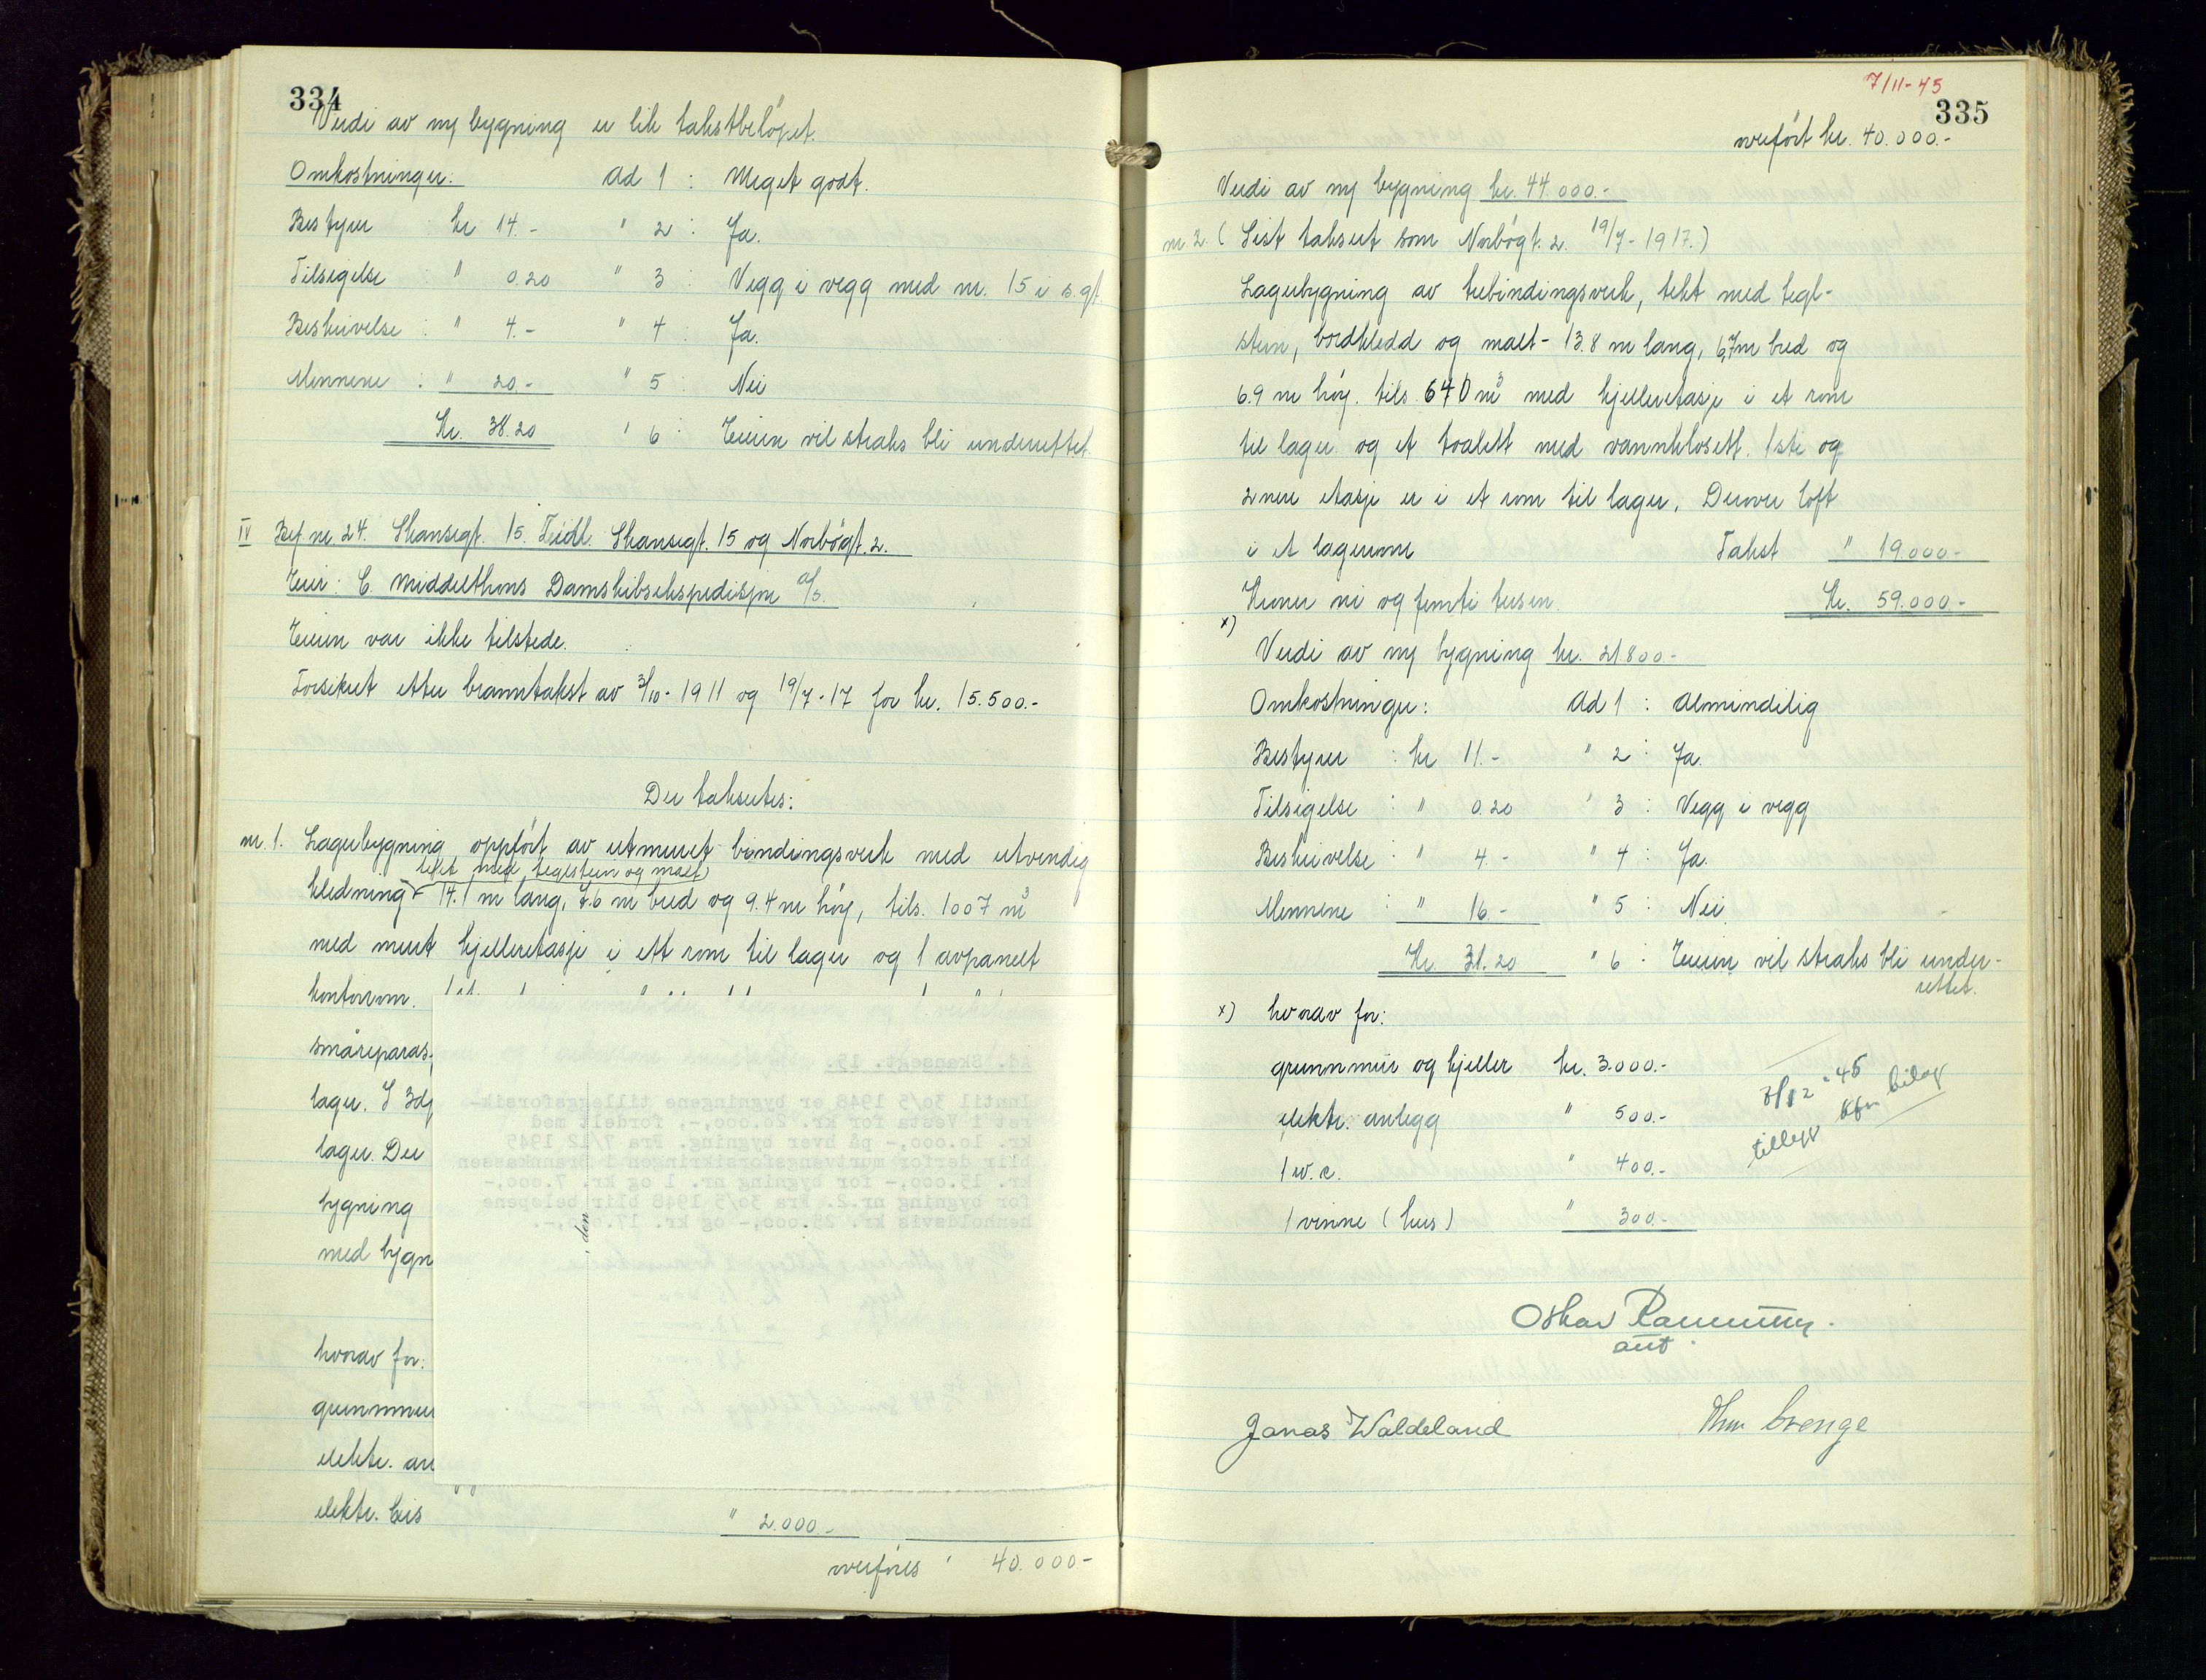 334
Verdi av ny bygning er lik takstbeløpet.
Omkostninger: Ad 1 : Meget godt.
Bestyrer kr 14.- " 2 : Ja.
Tilsigelse : " 0.20 " 3 : Vegg i vegg med nr. 15 i s.gt.
Beskrivelse : " 4.- " 4 : Ja.
Mennene : " 20.- " 5 : Nei
Kr. 38.20 " 6 : Eieren vil straks bli underrettet.
IV Bef. nr 24. Skansegt. 15. Tidl. Skansegt. 15 og Norbøgt. 2.
Eier: C. Middelthons Damskibsekspedisjon A/S.
Eieren var ikke tilstede.
Forsikret etter branntakst av 3/10-1911 og 19/7-17 for kr. 15.500.-
Der takseres:
nr. 1. Lagerbygning oppført av utmuret bindingsverk med utvendig
tekt med teglstein og malt
kledning - 14.1 m lang, 7.6 m bred og 9.4 m høy, tils. 1007 m3
med murt kjelleretasje i ett rom til lager og 1 avpanelt
kontorrom.
småreparas.
lager. I 3dj
lager. Der
bygning
med bygn
hvorav for:
grunnmur
elektr. an
elektr. heis
" 2.000.-
overføres " 40.000.-
Ad. Skansegt. 15.
Inntil 30/5 1948 er bygningene tilleggsforsik-
ret i Vesta for kr. 20.000,-, fordelt med
kr. 10.000,- på hver bygning. Fra 7/12 1945
blir derfor merverdforsikringen i Brannkassen
kr. 15.000,- for bygning nr. 1 og kr. 7.000,-
for bygning nr.2. Fra 30/5 1948 blir beløpene
henholdsvis kr. 25.000,- og kr. 17.000,-.
, den
7/11-45
335
overført kr. 40.000.-
Verdi av ny bygning kr. 44.000.-
nr 2. (Sist taksert som Norbøgt. 2. 19/7-1917.)
Lagerbygning av trebindingsverk, tekt med tegl-
stein, bordkledd og malt - 13.8 m lang, 6,7 m bred og
6.9 m høy. tils. 640 m3 med kjelleretasje i et rom
til lager og et toalett med vannklosett. 1ste og
2nen etasje er i et rom til lager. Derover loft
i et lagerrom Takst " 19.000.-
Kroner ni og femti tusen Kr. 59.000.-
x)
Verdi av ny bygning kr. 21.800.-
Omkostninger: Ad 1 : Almindelig
Bestyrer : kr 11.- " 2 : Ja.
Tilsigelse : " 0.20 " 3 : Vegg i vegg
Beskrivelse : " 4.- " 4 : Ja.
Mennene : " 16.- " 5 : Nei
Kr. 31.20 " 6 : Eieren vil straks bli under-
rettet.
x) hvorav for:
grunnmur og kjeller kr. 3.000.-
elektr. anlegg " 500.-
1 w.c. " 400.-
1 vinne (heis) " 300.-
7/12-45
tillegg bilag
Oskar Rasmussen
Jonas Waldeland